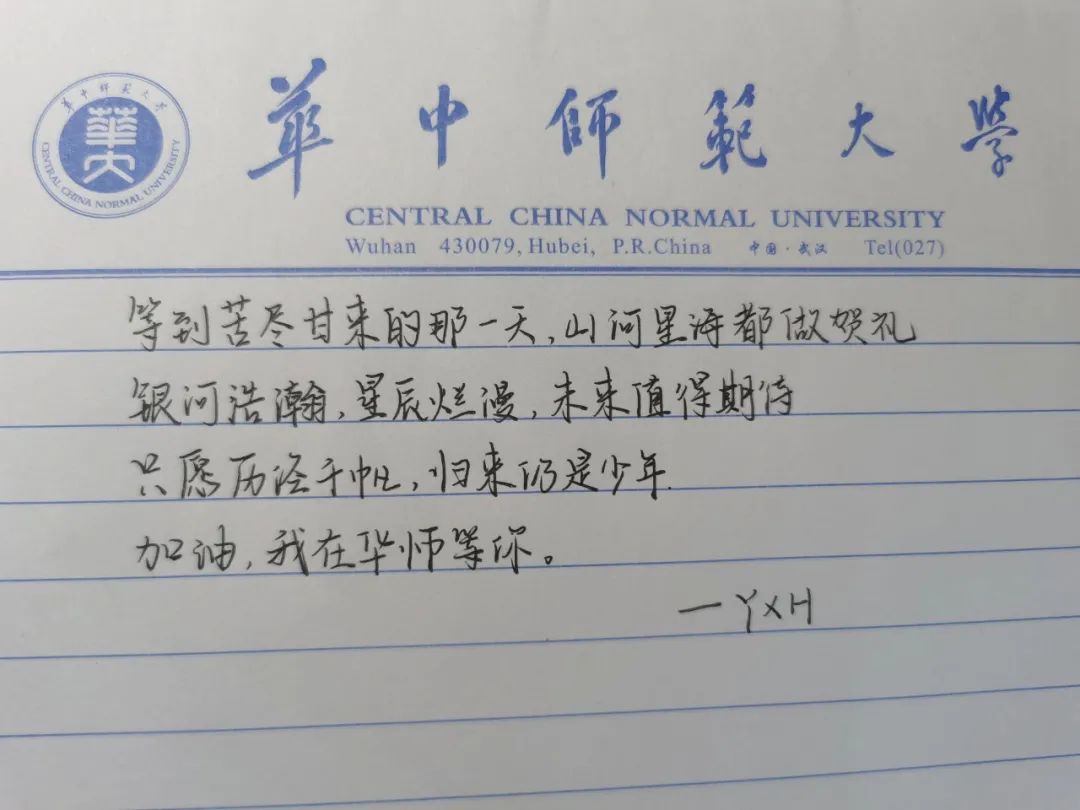 華中師範大學
華中師範大學
華大
CENTRAL CHINA NORMAL UNIVERSITY
CENTRAL CHINA NORMAL UNIVERSITY
Wuhan 430079, Hubei, P.R.China 中国·武汉 Tel(027)
等到苦尽甘来的那一天,山河星海都做贺礼
银河浩瀚,星辰烂漫,未来值得期待
只愿历经千帆,归来仍是少年.
加油,我在华师等你。
—YXH